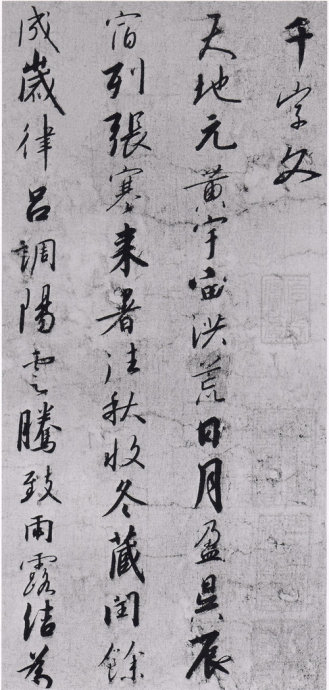 千字文
天地元黃宇宙洪荒日月盈昃辰
宿列張寒来暑往秋收冬藏閏餘
成歲律呂調陽雲騰致雨露結為